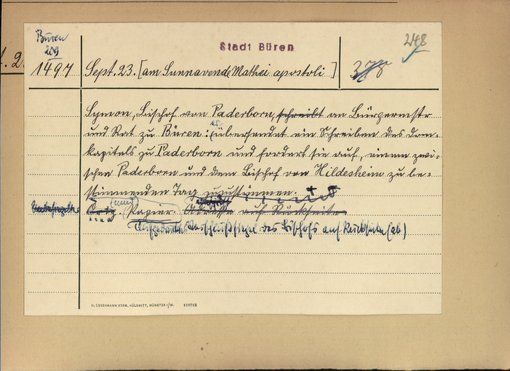 Büren
209
Stadt Büren
248
1497
Sept. 23. [am Sunnavende Mathei apostoli]
378
Symon, Bischof von Paderborn, schreibt an Bürgermstr
und Rat zu Büren: übersendet ein Schreiben des Dom-
kapitels zu Paderborn und fordert sie auf, einen zwi-
schen Paderborn und dem Bischof von Hildesheim zu be-
stimmenden Tag
Papier. auf Rückseite
des Bischofs auf Rückseite (ab)